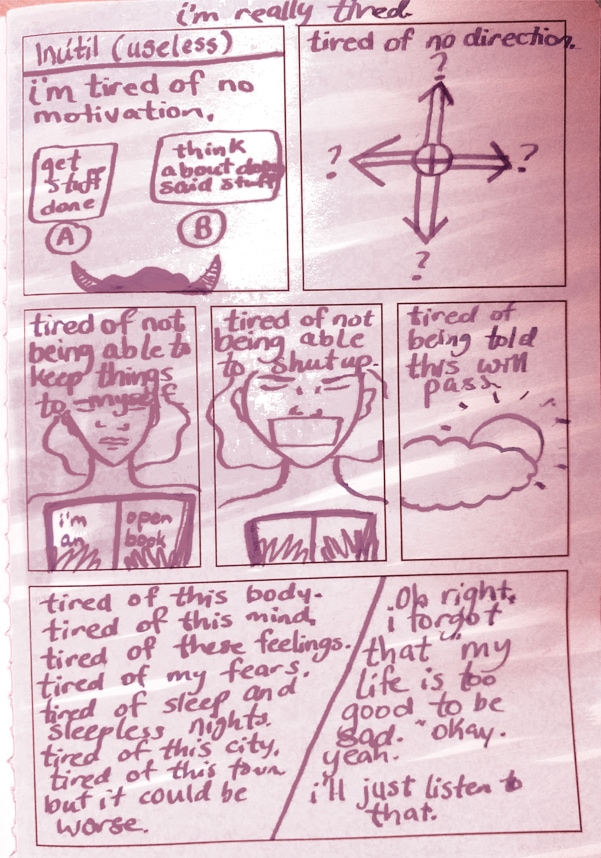 i'm really tired
Inútil (useless)
i'm tired of no
motivation.
get
stuff
done
A
think
about doing
said stuff
B
tired of no direction.
?
?
?
?
tired of not
being able to
keep things
to myself
i'm
an
open
book
tired of not
being able
to shut up.
tired of
being told
this will
pass.
tired of this body.
tired of this mind.
tired of these feelings.
tired of my fears.
tired of sleep and
sleepless nights.
tired of this city.
tired of this town
but it could be
worse.
Oh right.
i forgot
that "my
life is too
good to be
sad." okay.
yeah.
i'll just listen to
that.